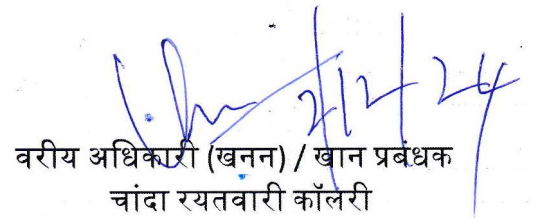 2/12/24
वरीय अधिकारी (खनन) / खान प्रबंधक
चांदा रयतवारी कॉलरी